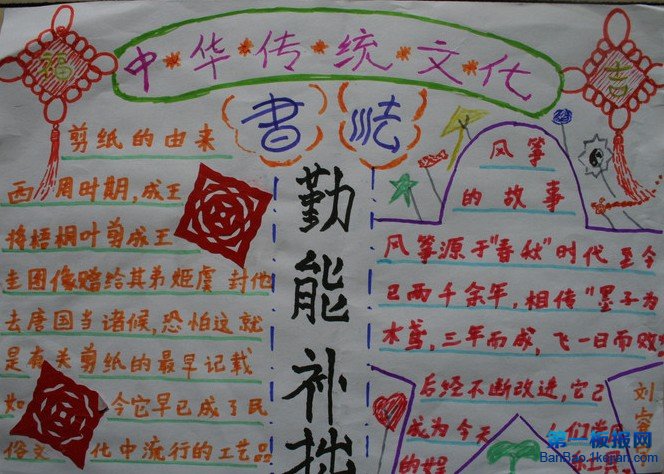 中华传统文化
福
吉
书法
剪纸的由来
西周时期，成王
将梧桐叶剪成王
圭图像赠给其弟姬虞 封他
去唐国当诸侯，恐怕这就
是有关剪纸的最早记载
如 今它早已成了民
俗文 化中流行的工艺品
勤能补拙
风筝
的故事
风筝源于"春秋"时代 至今
已两千余年，相传"墨子为
木鸢，三年而成，飞一日而败
后经不断改进，它已
成为今天 人们
的娱
刘
第一板报网
BanBao.1kejian.com